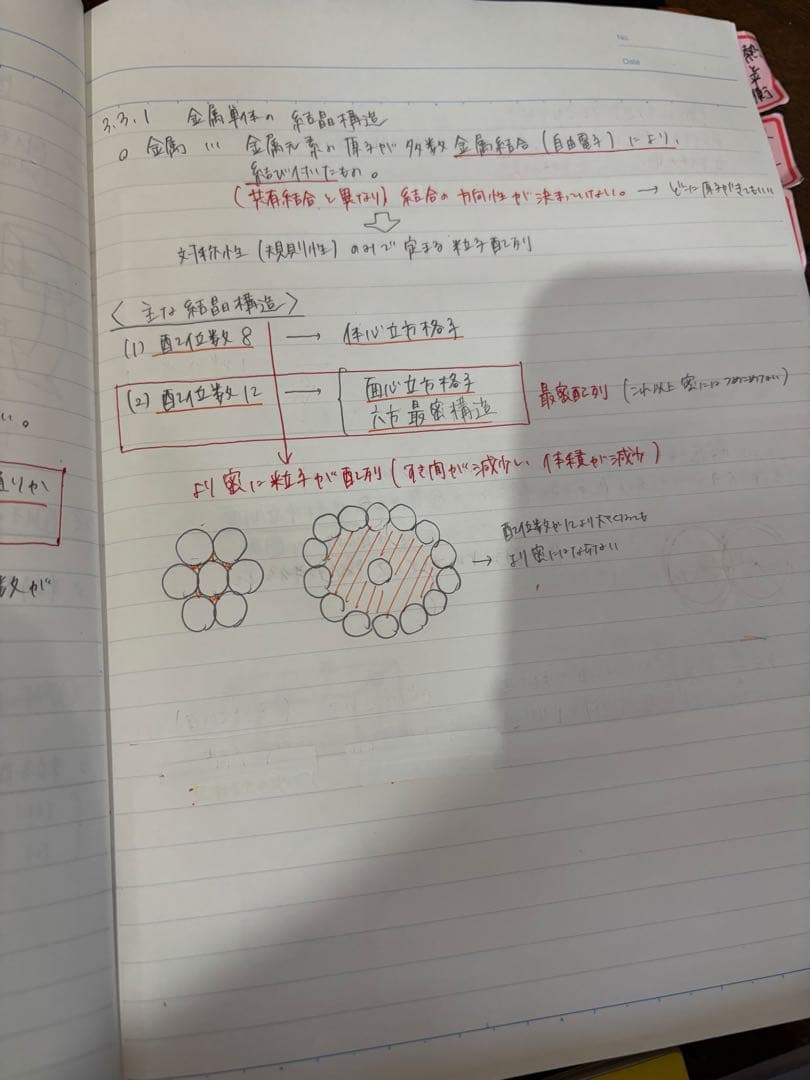 No.
Date
熱平衡
3.3.1 金属単体の結晶構造
○ 金属 … 金属元素の原子が多数金属結合(自由電子)により、
結び付いたもの。
(共有結合と異なり)結合の方向性が決まっていない。 → どこに原子がきてもいい
対称性(規則性)のみで定まる粒子配列
〈主な結晶構造〉
(1) 配位数8 → 体心立方格子
(2) 配位数12 → 面心立方格子
六方最密構造
最密配列(これ以上密にはつめこめない)
より密に粒子が配列(すき間が減少し、体積が減少)
→ 配位数が12より大きくなっても
より密にはならない
い。
数が